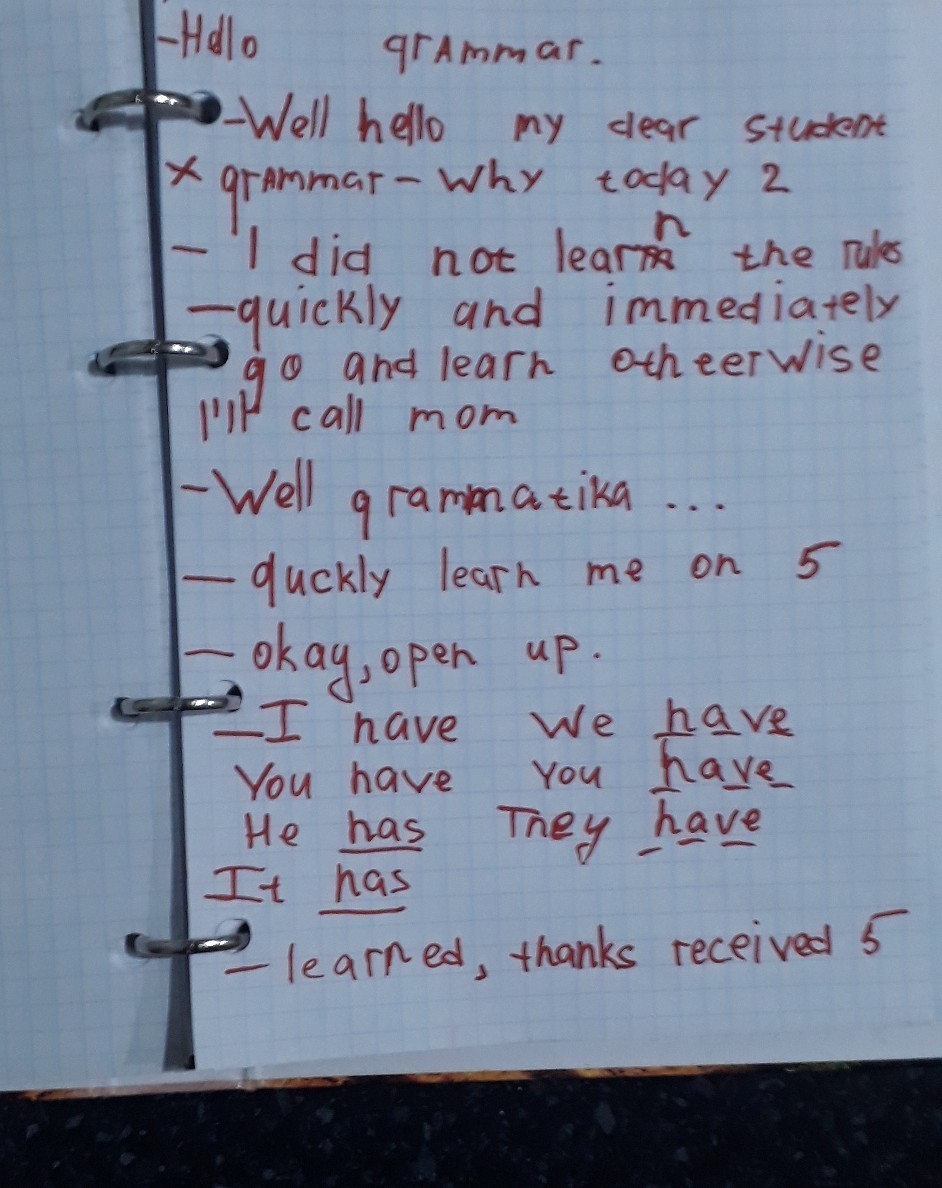 -Hello grammar.
-Well hello my dear student
x grammar - Why today 2
- I did not learn the rules
-quickly and immediately
go and learn otheerwise
I'll call mom
-Well grammatika ...
- quckly learn me on 5
- okay, open up.
-I have We have
You have You have
He has They have
It has
- learned, thanks received 5